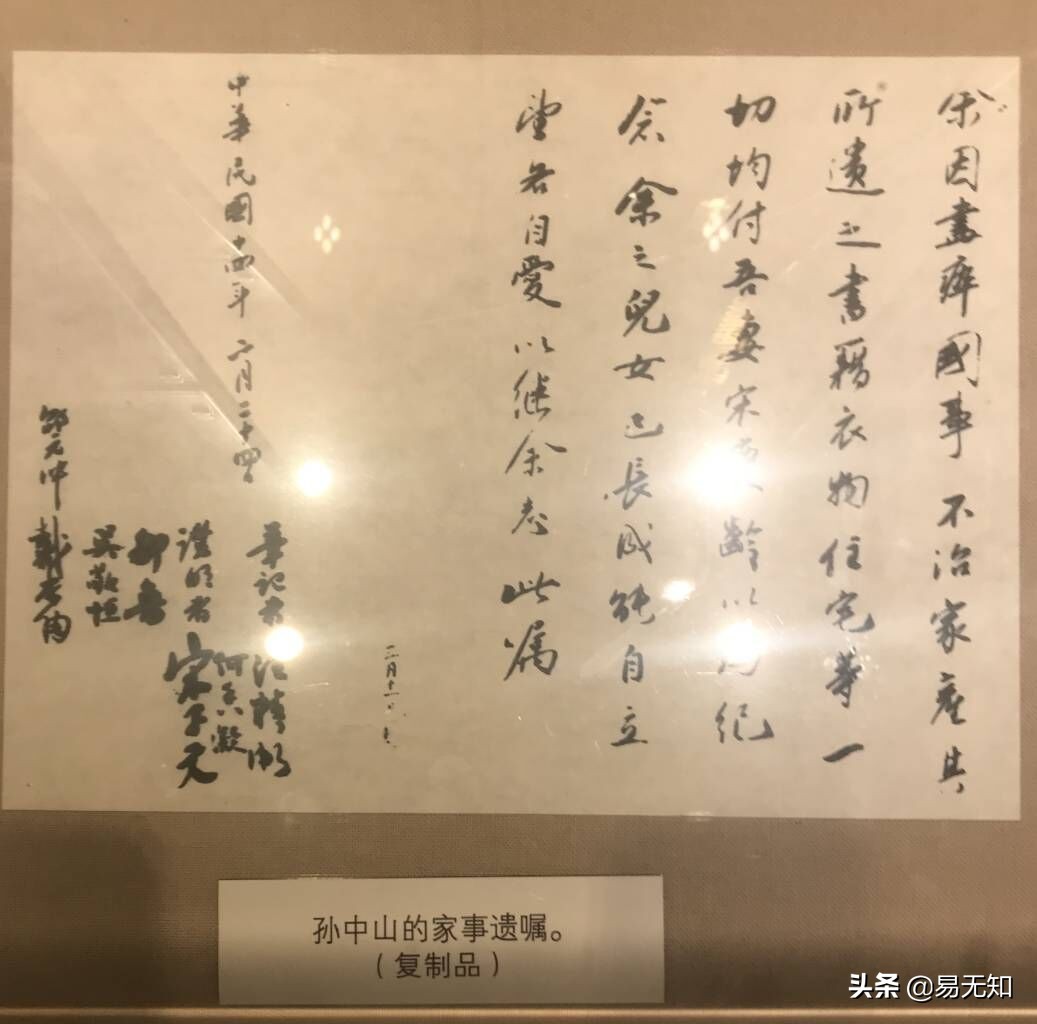 余因盡瘁國事不治家產其
所遺之書籍衣物住宅等一
切均付吾妻宋慶齡以為紀
念余之兒女已長成能自立
望各自愛以継余志此屬
三月十一日
中華民國十四年二月二十四日
筆記者 汪精衛
何香凝
證明者 宋子文
鄒魯
吳敬恒
邵元冲 戴
孙中山的家事遗嘱。
（复制品）
头条 @易无知